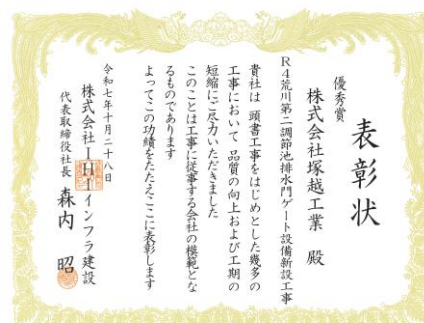 表彰状
優秀賞
株式会社塚越工業 殿
R4荒川第二調節池排水門ゲート設備新設工事
貴社は 頭書工事をはじめとした幾多の
工事において 品質の向上および工期の
短縮にご尽力いただきました
このことは工事に従事する会社の模範とな
るものであります
よってこの功績をたたえここに表彰します
令和七年十月二十八日
株式会社IHIインフラ建設
代表取締役社長 森内 昭